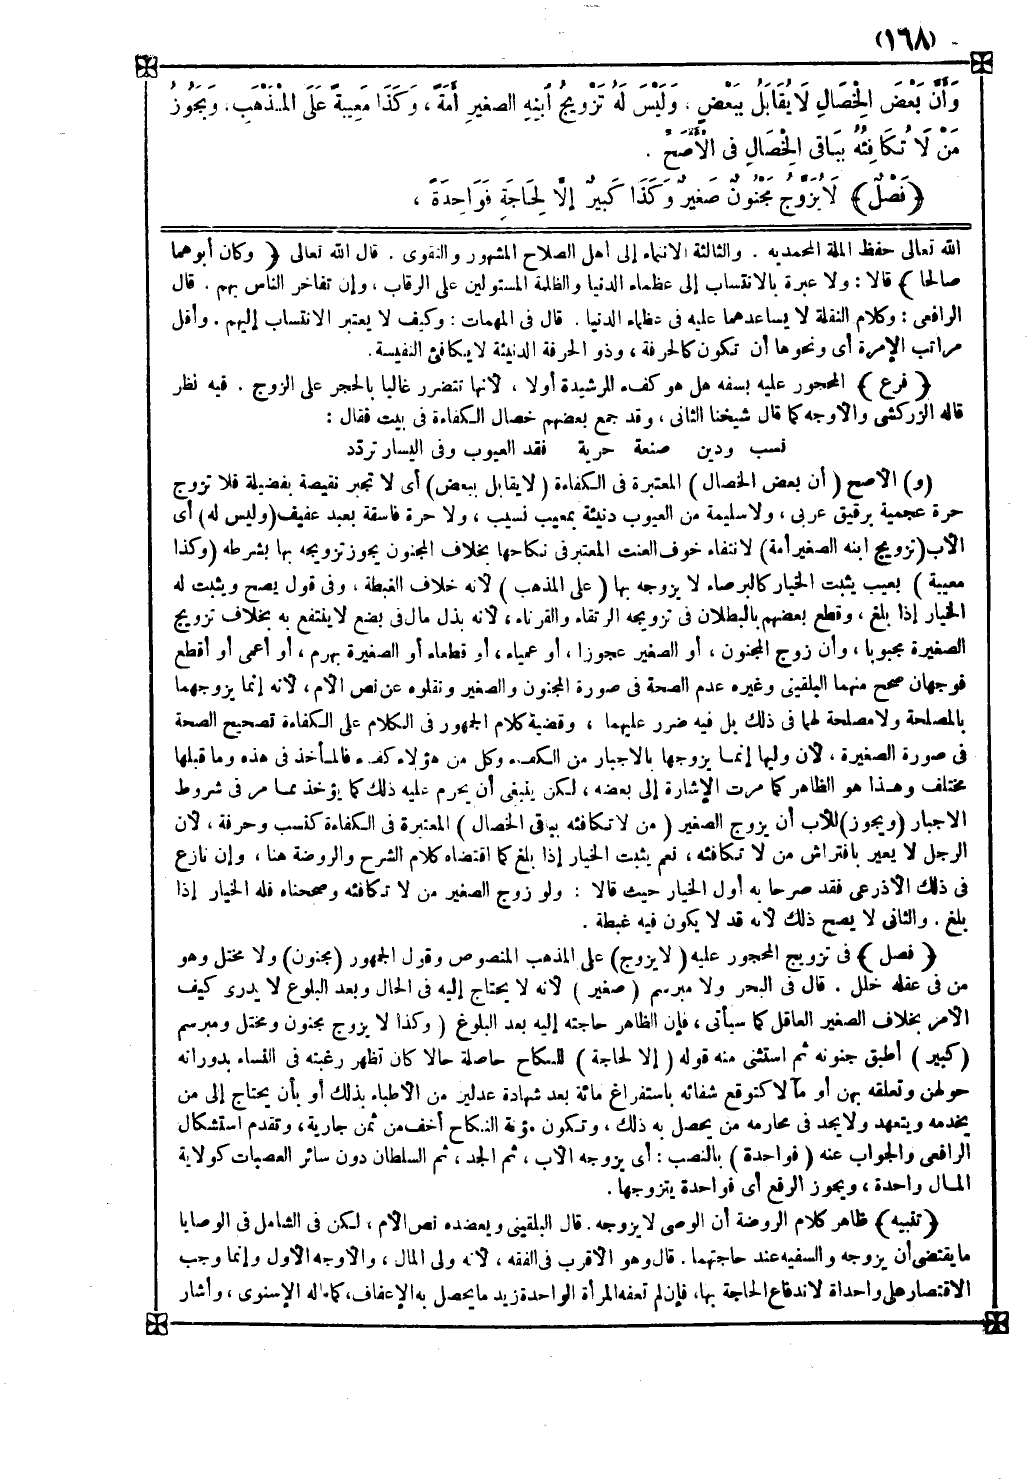 (١٦٨)
وَأَنَّ بَعْضَ الْخِصَالِ لَا يُقَابَلُ بِبَعْضٍ ، وَلَيْسَ لَهُ تَزْوِيجُ ابْنِهِ الصغيرِ أَمَةً ، وَكَذَا مَعِيبَةً عَلَى الْمَذْهَبِ ، وَيَجُوزُ
مَنْ لَا تُكَافِئُهُ بِبَاقِى الْخِصَالِ فِى الْأَصَحِّ .
﴿ فَصْلٌ ﴾ لَا يُزَوَّجُ مَجْنُونٌ صَغِيرٌ وَكَذَا كَبِيرٌ إلَّا لِحَاجَةٍ فَوَاحِدَةً ،
الله تعالى حفظ الملة المحمديه . والثالثة الانتماء إلى أهل الصلاح المشهور والتقوى . قال الله تعالى ﴿ وكان أبوهما
صالحا ﴾ قالا : ولا عبرة بالانتساب إلى عظماء الدنيا والظلمة المستولين على الرقاب ، وإن تفاخر الناس بهم . قال
الرافعى : وكلام النقلة لا يساعدهما عليه فى عظماء الدنيا . قال فى المهمات : وكيف لا يعتبر الانتساب إليهم . وأقل
مراتب الإمرة أى ونحوها أن تكون كالحرفة ، وذو الحرفة الدنيئة لا يكافئ النفيسة .
﴿ فرع ﴾ المحجور عليه بسفه هل هو كفء للرشيدة أولا ، لأنها تتضرر غالبا بالحجر على الزوج . فيه نظر
قاله الزركشى والأوجه كما قال شيخنا الثانى ، وقد جمع بعضهم خصال الكفاءة فى بيت فقال :
نسب ودين صنعة حرية فقد العيوب وفى اليسار تردّد
(و) الأصح ( أن بعض الخصال ) المعتبرة فى الكفاءة ( لا يقابل ببعض ) أى لا تجبر نقيصة بفضيلة فلا تزوج
حرة عجمية برقيق عربى ، ولا سليمة من العيوب دنيئة بمعيب نسيب ، ولا حرة فاسقة بعبد عفيف (وليس له) أى
الأب (تزويج ابنه الصغير أمة) لانتفاء خوف العنت المعتبر فى نكاحها بخلاف المجنون يجوز تزويجه بها بشرطه (وكذا
معيبة ) بعيب يثبت الخيار كالبرصاء لا يزوجه بها ( على المذهب ) لأنه خلاف الغبطة ، وفى قول يصح ويثبت له
الخيار إذا بلغ ، وقطع بعضهم بالبطلان فى تزويجه الرتقاء والقرناء ، لأنه بذل مال فى بضع لا ينتفع به بخلاف تزويج
الصغيرة مجبوبا ، وأن زوج المجنون ، أو الصغير عجوزا ، أو عمياء ، أو قطعاء أو الصغيرة بهرم ، أو أعمى أو أقطع
فوجهان صحح منهما البلقينى وغيره عدم الصحة فى صورة المجنون والصغير ونقلوه عن نص الأم ، لأنه إنما يزوجهما
بالمصلحة ولا مصلحة لهما فى ذلك بل فيه ضرر عليهما ، وقضية كلام الجمهور فى الكلام على الكفاءة تصحيح الصحة
فى صورة الصغيرة ، لأن وليها إنما يزوجها بالاجبار من الكفء وكل من هؤلاء كفء فالمأخذ فى هذه وما قبلها
مختلف وهذا هو الظاهر كما مرت الإشارة إلى بعضه ، لكن ينبغى أن يحرم عليه ذلك كما يؤخذ مما مر فى شروط
الاجبار (ويجوز) للأب أن يزوج الصغير ( من لا تكافئه بباقى الخصال ) المعتبرة فى الكفاءة كنسب وحرفة ، لأن
الرجل لا يعير بافتراش من لا تكافئه ، نعم يثبت الخيار إذا بلغ كما اقتضاه كلام الشرح والروضة هنا ، وإن نازع
فى ذلك الأذرعى فقد صرحا به أول الخيار حيث قالا : ولو زوج الصغير من لا تكافئه وصححناه فله الخيار إذا
بلغ . والثانى لا يصح ذلك لأنه قد لا يكون فيه غبطة .
﴿ فصل ﴾ فى تزويج المحجور عليه ( لا يزوج ) على المذهب المنصوص وقول الجمهور (مجنون) ولا مختل وهو
من فى عقله خلل . قال فى البحر ولا مبرسم ( صغير ) لأنه لا يحتاج إليه فى الحال وبعد البلوغ لا يدرى كيف
الأمر بخلاف الصغير العاقل كما سيأتى ، فإن الظاهر حاجته إليه بعد البلوغ ( وكذا لا يزوج مجنون ومختل ومبرسم
(كبير ) أطبق جنونه ثم استثنى منه قوله ( إلا لحاجة ) للنكاح حاصلة حالا كأن تظهر رغبته فى النساء بدورانه
حولهن وتعلقه بهن أو مآلا كتوقع شفائه باستفراغ مائة بعد شهادة عدلين من الأطباء بذلك أو بأن يحتاج إلى من
يخدمه ويتعهد ولا يجد فى محارمه من يحصل به ذلك ، وتكون مؤنة النكاح أخف من ثمن جارية ، وتقدم استشكال
الرافعى والجواب عنه ( فواحدة ) بالنصب : أى يزوجه الأب ، ثم الجد ، ثم السلطان دون سائر العصبات كولاية
المال واحدة ، ويجوز الرفع أى فواحدة يتزوجها .
﴿ تنبيه ﴾ ظاهر كلام الروضة أن الوصى لا يزوجه . قال البلقينى ويعضده نص الأم ، لكن فى الشامل فى الوصايا
ما يقتضى أن يزوجه والسفيه عند حاجتهما . قال وهو الأقرب فى الفقه ، لأنه ولى المال ، والأوجه الأول وإنما وجب
الاقتصار على واحداة لاندفاع الحاجة بها ، فإن لم تعفه المرأة الواحدة زيد ما يحصل به الإعفاف ، كما قاله الإسنوى ، وأشار